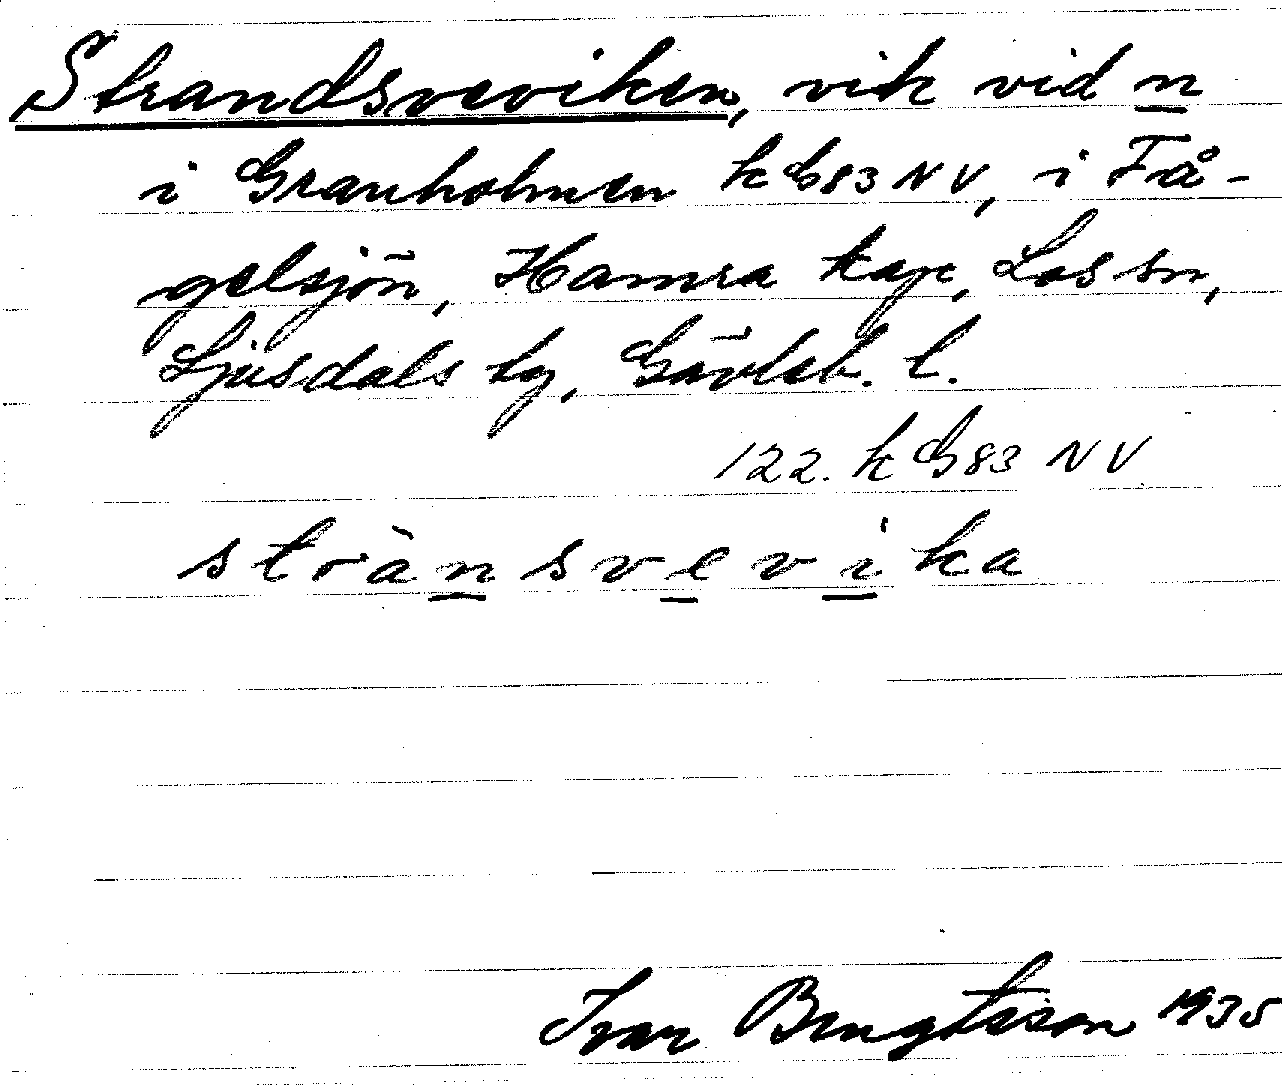 Strandsveviken, vik vid n
i Granholmen k G83 NV, i Få-
gelsjön, Hamra kap, Los sn,
Ljusdals tg, Gävleb. l.
122. k G83 NV
strànsvevika
Ivar Bengtsson 1935